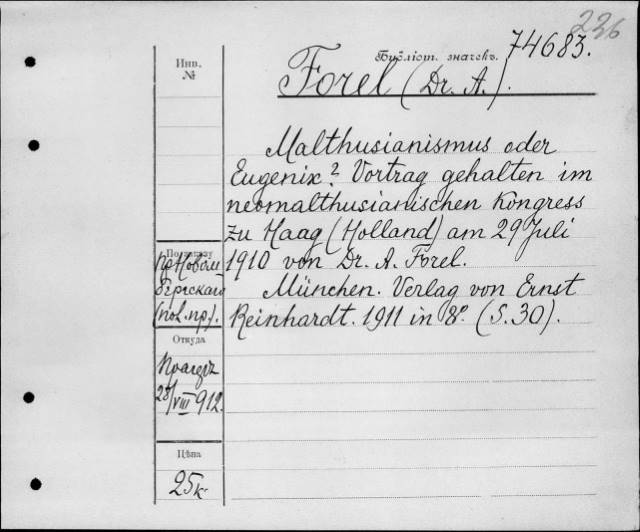 236
Инв.
№
Библіот. значекъ. 74683.
Forel (Dr. A.).
Malthusianismus oder
Eugenix? Vortrag gehalten im
neomalthusianischen Kongress
zu Haag (Holland) am 29 Juli
1910 von Dr. A. Forel.
München. Verlag von Ernst
Reinhardt. 1911 in 8º. (S. 30).
По указу
(пол. пр.).
Откуда
28/VIII 912.
Цѣна
25к